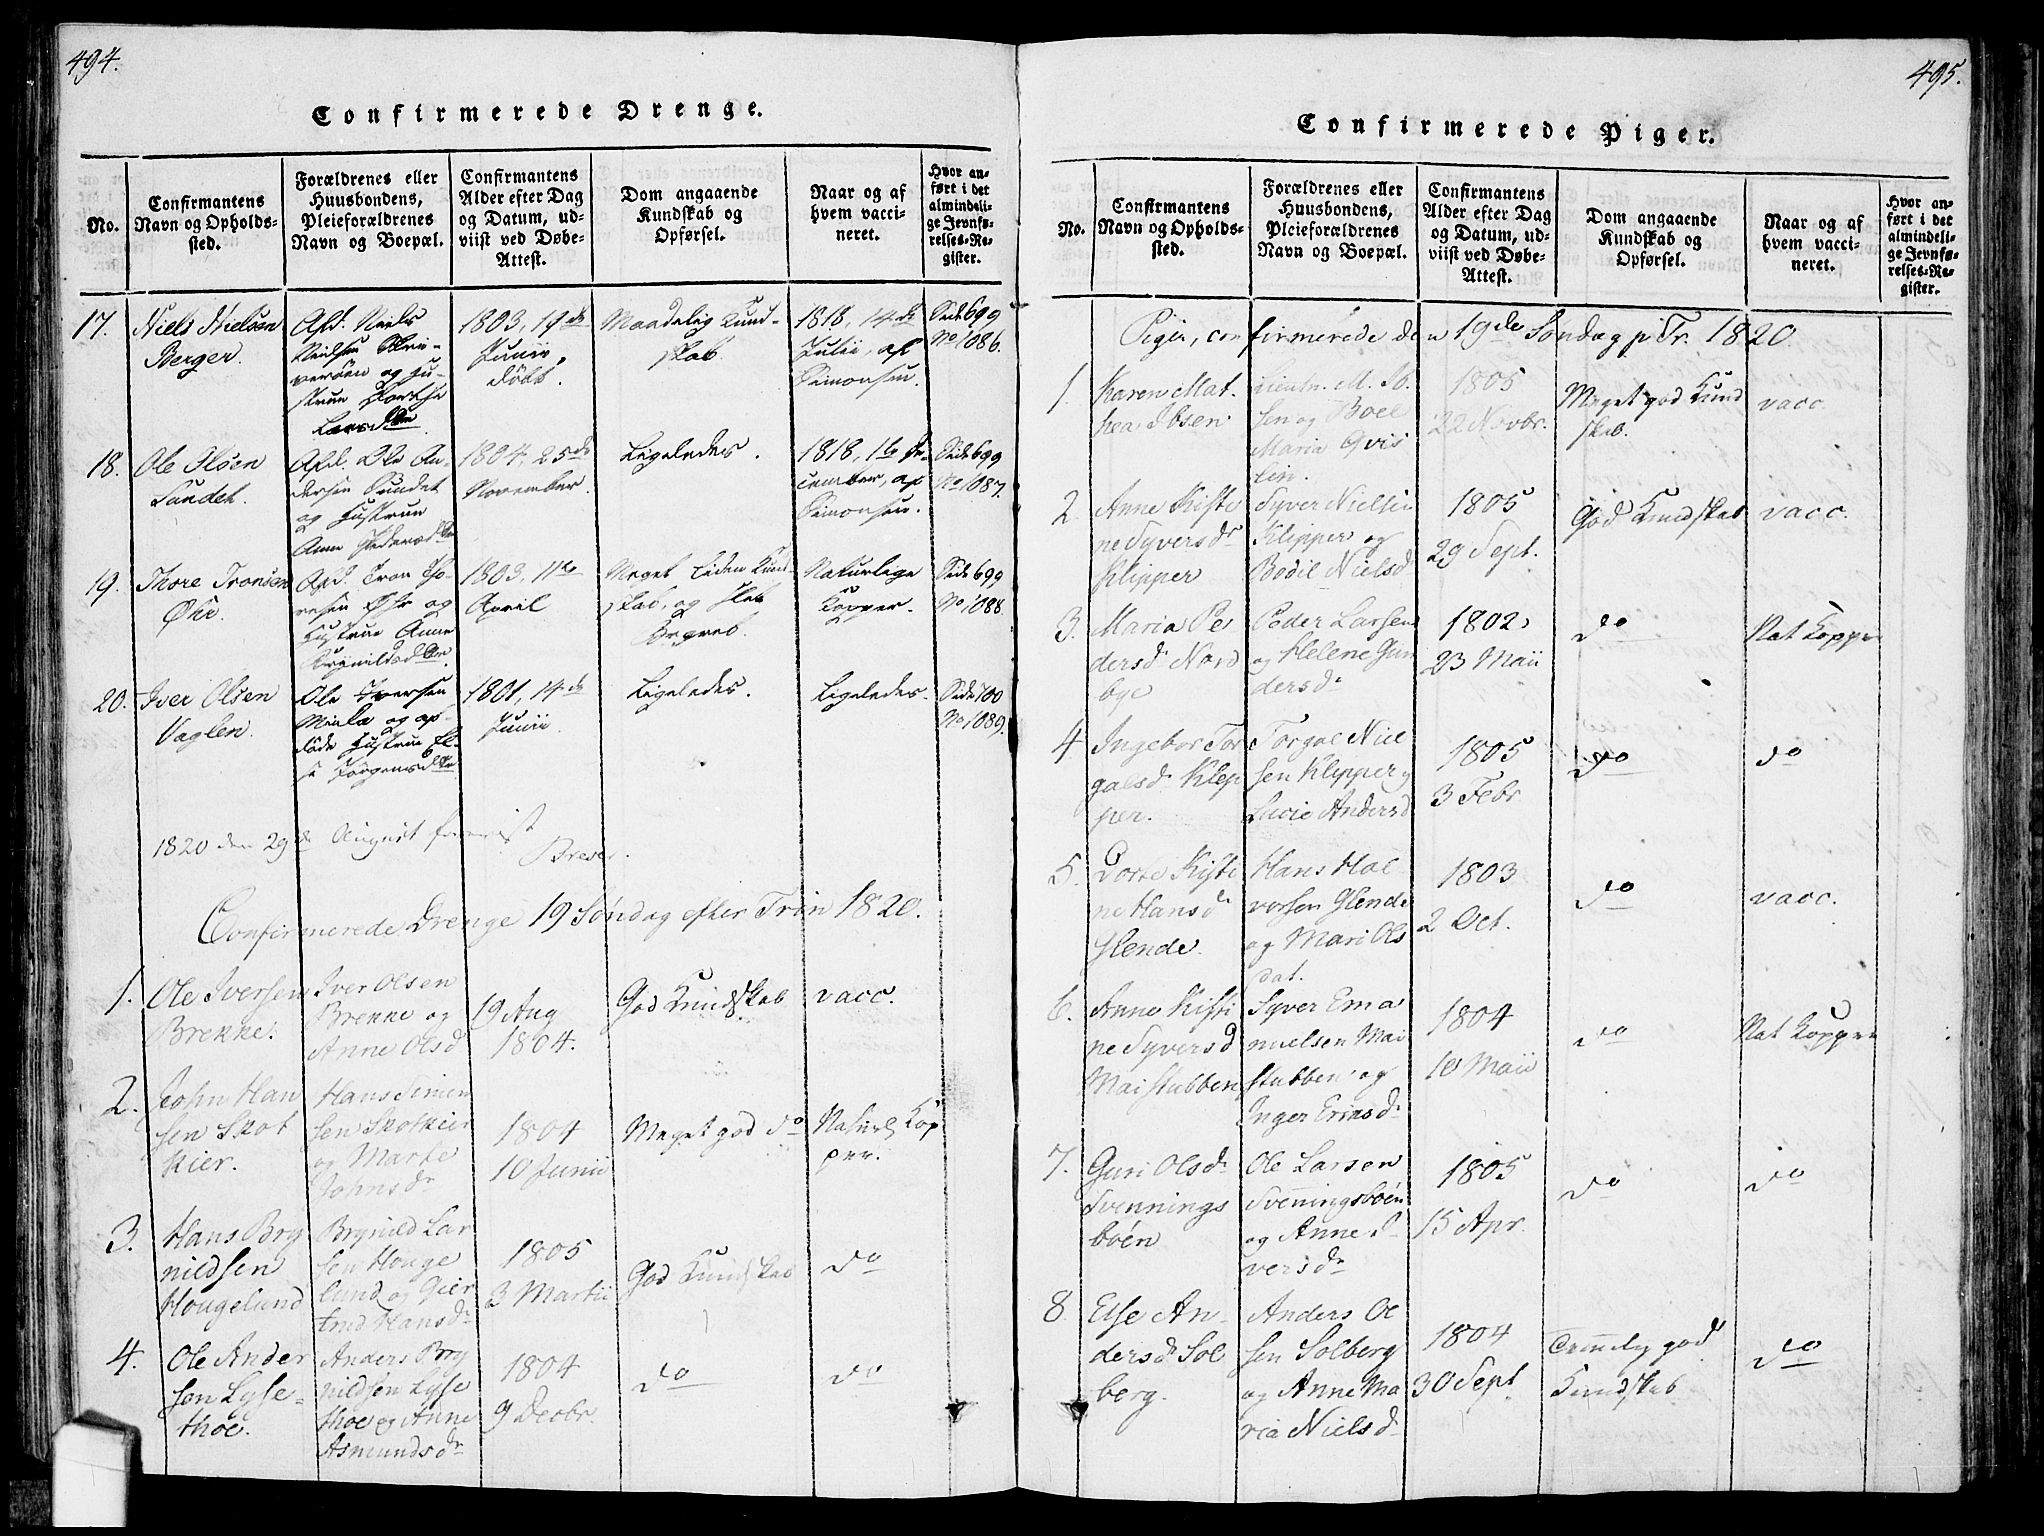 494.
Confirmerede Drenge.
No.
Confirmantens
Navn og Opholds-
sted.
Forældrenes eller
Huusbondens,
Pleieforældrenes
Navn og Boepæl.
Confirmantens
Alder efter Dag
og Datum, ud-
viist ved Døbe-
Attest.
Dom angaaende
Kundskab og
Opførsel.
Naar og af
hvem vacci-
neret.
Hvor an-
ført i det
almindeli-
ge Jevnfø-
relses-Re-
gister.
17.
Niels Nielsen
Berger.
Afd. Niels
Nielsen
og Hu-
strue
1803, 19de
Junii,
døbt.
Maadelig Kund-
skab.
1818, 14de
Julii, af
Simonsen.
Side 699
No 1086.
18.
Ole Olsen
Sundet.
Afd. Ole An-
dersen Sundet
og Hustrue
Anne Pedersd.
1804, 25de
November.
Ligeledes.
1818, 16 De-
cember, af
Simonsen.
Side 699
No 1087.
19.
Thore Tronsen
Øhr.
Afd. Tron Tho-
resen Øhr og
Hustrue Anne
Brynildsd.
1803, 11te
April
Meget liden Kund-
skab, og slet
Begreb.
Naturlige
Kopper.
Side 699
No 1088.
20.
Iver Olsen
Vaglen.
Ole Iversen
og af-
døde Hustrue El-
se Jörgensd.
1801, 14de
Junii
Ligeledes.
Ligeledes.
Side 700
No 1089.
1820 den 29de August
Confirmerede Drenge 19 Søndag efter Trin 1820.
1.
Ole Iversen
Brekke.
Iver Olsen
Brekke og
Anne Olsd
19 Aug
1804.
God Kundskab
vacc.
2.
John Han
sen Skot
kier.
Hans Simen
sen Skotkier
og Marte
Johnsd.
1804
10 Junii
Meget god do
Naturl Kop
per.
3.
Hans Bry
nildsen
Hougelund
Brynild Lar
sen Houge
lund og Gier
trud Hansd.
1805
3 Martii
God Kundskab
do
4.
Ole Ander
sen Lyse-
thoe.
Anders Bry
nildsen Lyse
thoe og Anne
Asmundsd.
1804
9 Decbr.
do
do
495.
Confirmerede Piger.
No.
Confirmantens
Navn og Opholds-
sted.
Forældrenes eller
Huusbondens,
Pleieforældrenes
Navn og Boepæl.
Confirmantens
Alder efter Dag
og Datum, ud-
viist ved Døbe-
Attest.
Dom angaaende
Kundskab og
Opførsel.
Naar og af
hvem vacci-
neret.
Hvor an-
ført i det
almindeli-
ge Jevnfø-
relses-Re-
gister.
Piger, confirmerede den 19de Søndag p Tr. 1820
1.
Karen Mat.
hea Ibsen
M. Ib.
sen og Boel
Maria Qvis
lin.
1805
22 Novbr.
Meget god Kund
skab.
vacc.
2
Anne Kisti
ne Syversd.
Klipper
Syver Nielsen
Klipper og
Bodil Nielsd
1805
29 Sept.
God Kundskab
vacc.
3.
Maria Pe
dersd. Nord
bye
Peder Larsen
og Helene Gun
dersd.
1802
23 Maii
do
Nat Kopper
4
Ingebor Tor
galsd. Klep
per.
Torgal Niel
sen Klipper og
Lucie Andersd
1805
3 Febr
do
do
5.
Dorte Kisti
ne Hansd.
Glende.
Hans Hal
vorsen Glende
og Mari Ols
dat.
1803
2 Oct.
do
vacc.
6.
Anne Kisti
ne Syversd
Maistubben
Syver Ema
nuelsen Mai
stubben og
Inger Eriksd.
1804
10 Maii
do
Nat Kopper
7.
Guri Olsd.
Svennings
böen
Ole Larsen
Sveningsböen
og Anne I
versd.
1805
15 Apr.
do
do
8
Else An-
dersd. Sol
berg.
Anders Ol
sen Solberg
og Anne Ma
ria Nielsd.
1804
30 Sept
Temelig god
Kundskab
do